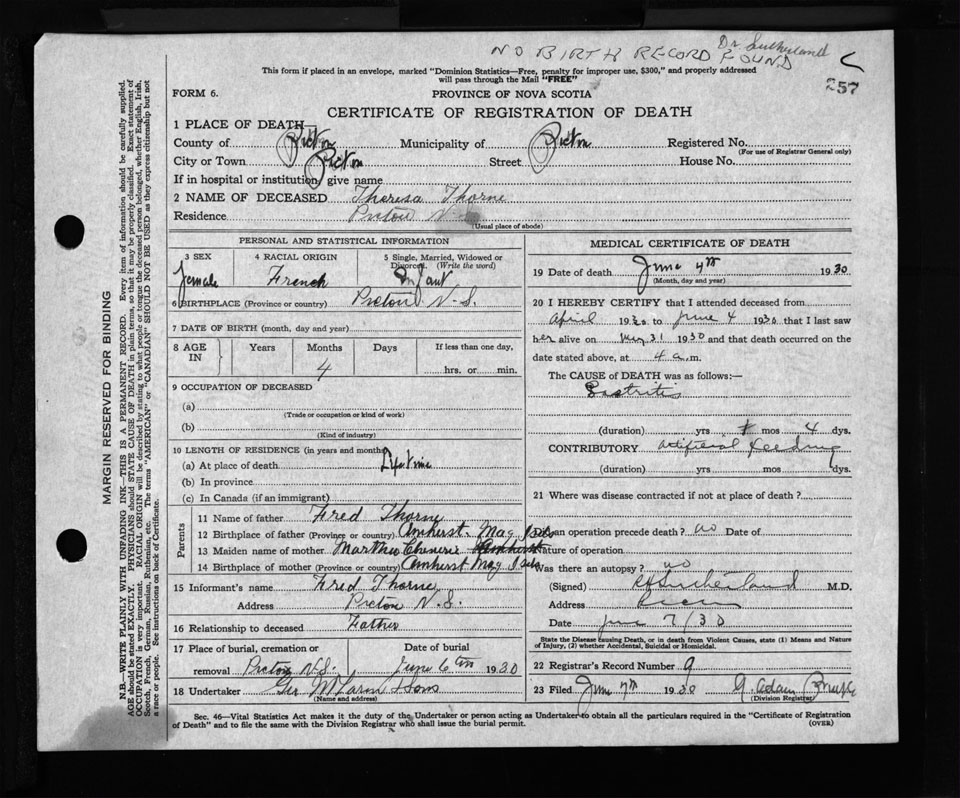 NO BIRTH RECORD FOUND
Dr Sutherland
257
This form if placed in an envelope, marked "Dominion Statistics—Free, penalty for improper use, $300," and properly addressed
will pass through the Mail "FREE"
FORM 6.
PROVINCE OF NOVA SCOTIA
CERTIFICATE OF REGISTRATION OF DEATH
1 PLACE OF DEATH—
County of Pictou Municipality of Pictou Registered No.
(For use of Registrar General only)
City or Town Pictou Street House No.
If in hospital or institution, give name
2 NAME OF DECEASED Theresa Thorne
Residence Pictou N.S.
(Usual place of abode)
PERSONAL AND STATISTICAL INFORMATION
3 SEX 4 RACIAL ORIGIN 5 Single, Married, Widowed or
Divorced. (Write the word)
Female French Infant
6 BIRTHPLACE (Province or country) Pictou N.S.
7 DATE OF BIRTH (month, day and year)
8 AGE IN Years Months Days If less than one day,
4 hrs. or min.
9 OCCUPATION OF DECEASED
(a)
(Trade or occupation or kind of work)
(b)
(Kind of industry)
10 LENGTH OF RESIDENCE (in years and months)
(a) At place of death Lifetime
(b) In province
(c) In Canada (if an immigrant)
Parents
11 Name of father Fred Thorne
12 Birthplace of father (Province or country) Amherst Mag Isls
13 Maiden name of mother Martha Amherst
14 Birthplace of mother (Province or country) Amherst Mag Isls
15 Informant's name Fred Thorne
Address Pictou N.S.
16 Relationship to deceased Father
17 Place of burial, cremation or Date of burial
removal Pictou N.S. June 6th 1930
18 Undertaker Geo Sons
(Name and address)
MEDICAL CERTIFICATE OF DEATH
19 Date of death June 4th 1930
(Month, day and year)
20 I HEREBY CERTIFY that I attended deceased from
April 1930 to June 4 1930 that I last saw
her alive on May 31 1930 and that death occurred on the
date stated above, at 4 a.m.
The CAUSE OF DEATH was as follows:—
Gastritis
(duration) yrs mos 4 dys.
CONTRIBUTORY artificial feeding
(duration) yrs mos dys.
21 Where was disease contracted if not at place of death?
Did an operation precede death? no Date of
Nature of operation
Was there an autopsy? no
(Signed) Sutherland M.D.
Address
Date June 7/30
State the Disease causing Death, or in death from Violent Causes, state (1) Means and Nature
of Injury, (2) whether Accidental, Suicidal or Homicidal.
22 Registrar's Record Number 9
23 Filed June 7th 1930 G. Adam
(Division Registrar)
Sec. 46—Vital Statistics Act makes it the duty of the Undertaker or person acting as Undertaker to obtain all the particulars required in the "Certificate of Registration
of Death" and to file the same with the Division Registrar who shall issue the burial permit.
(OVER)
MARGIN RESERVED FOR BINDING
N.B.—WRITE PLAINLY WITH UNFADING INK—THIS IS A PERMANENT RECORD. Every item of information should be carefully supplied.
AGE should be stated EXACTLY. PHYSICIANS should STATE CAUSE OF DEATH in plain terms, so that it may be properly classified. Exact statement of
OCCUPATION is very important. RACIAL ORIGIN will be described by stating to what people or tongue the deceased person belonged, whether English, Irish,
Scotch, French, German, Russian, Ruthenian, etc. The terms "AMERICAN" or "CANADIAN" SHOULD NOT BE USED as they express citizenship but not
a race or people. See instructions on back of Certificate.